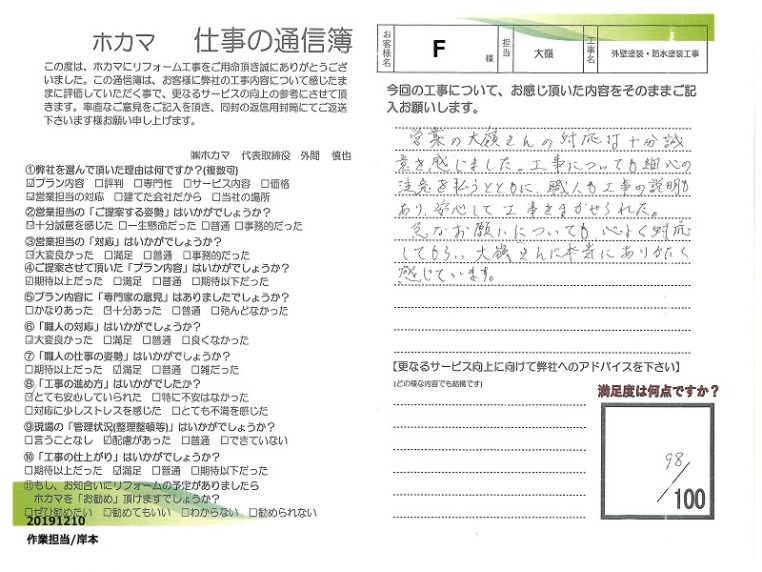 ホカマ 仕事の通信簿
この度は、ホカマにリフォーム工事をご用命頂き誠にありがとうござ
いました。この通信簿は、お客様に弊社の工事内容について感じたま
まに評価していただく事で、更なるサービスの向上の参考にさせて頂
きます。率直なご意見をご記入を頂き、同封の返信用封筒にてご返送
下さいます様お願い申し上げます。
㈱ホカマ 代表取締役 外間 慎也
①弊社を選んで頂いた理由は何ですか?(複数可)
☑プラン内容 □評判 □専門性 □サービス内容 □価格
☑営業担当の対応 □建てた会社だから □当社の場所
②営業担当の「ご提案する姿勢」はいかがでしょうか?
☑十分誠意を感じた □一生懸命だった □普通 □事務的だった
③営業担当の「対応」はいかがでしょうか?
☑大変良かった □満足 □普通 □事務的だった
④ご提案させて頂いた「プラン内容」はいかがでしょうか?
☑期待以上だった □満足 □普通 □期待以下だった
⑤プラン内容に「専門家の意見」はありましたでしょうか?
□かなりあった ☑十分あった □普通 □殆んどなかった
⑥「職人の対応」はいかがでしょうか?
☑大変良かった □満足 □普通 □良くなかった
⑦「職人の仕事の姿勢」はいかがでしょうか?
□期待以上だった ☑満足 □普通 □雑だった
⑧「工事の進め方」はいかがでしたか?
☑とても安心していられた □特に不安はなかった
□対応に少しストレスを感じた □とても不満を感じた
⑨現場の「管理状況(整理整頓等)」はいかがでしょうか?
□言うことなし ☑配慮があった □普通 □できていない
⑩「工事の仕上がり」はいかがでしょうか?
□期待以上だった ☑満足 □普通 □期待以下だった
⑪もし、お知合いにリフォームの予定がありましたら
ホカマを「お勧め」頂けますでしょうか?
□ぜひ勧めたい □勧めてもいい □わからない □勧められない
20191210
作業担当/岸本
お客様名 F 様 担当 大嶺 工事名 外壁塗装・防水塗装工事
今回の工事について、お感じ頂いた内容をそのままご記
入お願いします。
営業の大嶺さんの対応は十分誠
意を感じました。工事についても細心の
注意を払うとともに、職人も工事の説明も
あり、安心して工事をまかせられた。
急なお願いについても、心よく対応
してもらい、大嶺さんに本当にありがたく
感じています。
【更なるサービス向上に向けて弊社へのアドバイスを下さい】
(どの様な内容でも結構です)
満足度は何点ですか?
98/100